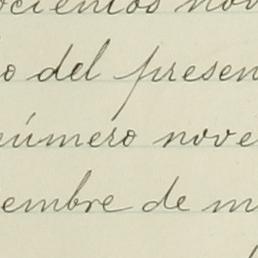 ocientos nov
o del presen
número nove
embre de m